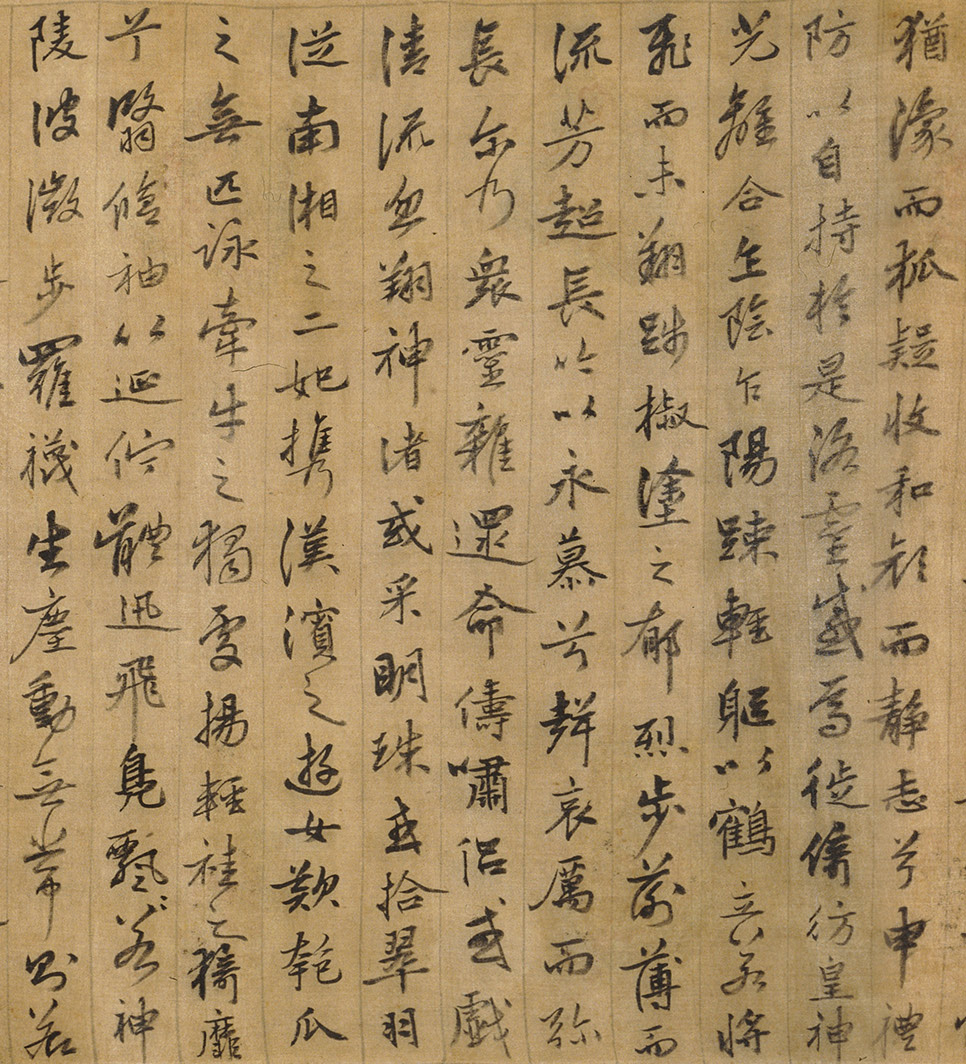 猶豫而狐疑收和顔而静志兮申禮
防以自持於是洛靈感焉徙倚彷皇神
光離合乍陰乍陽竦輕軀以鶴立若將
飛而未翔踐椒塗之郁烈步蘅薄而
流芳超長吟以永慕兮聲哀厲而弥
長尔乃衆靈雜遝命儔嘯侣或戯
清流忽翔神渚或采明珠或拾翠羽
從南湘之二妃携漢濱之游女歎匏瓜
之無匹詠牽牛之獨處揚輕袿之猗靡
兮翳脩袖以延佇體迅飛鳧飄〻若神
陵波微步羅襪生塵動無常則若